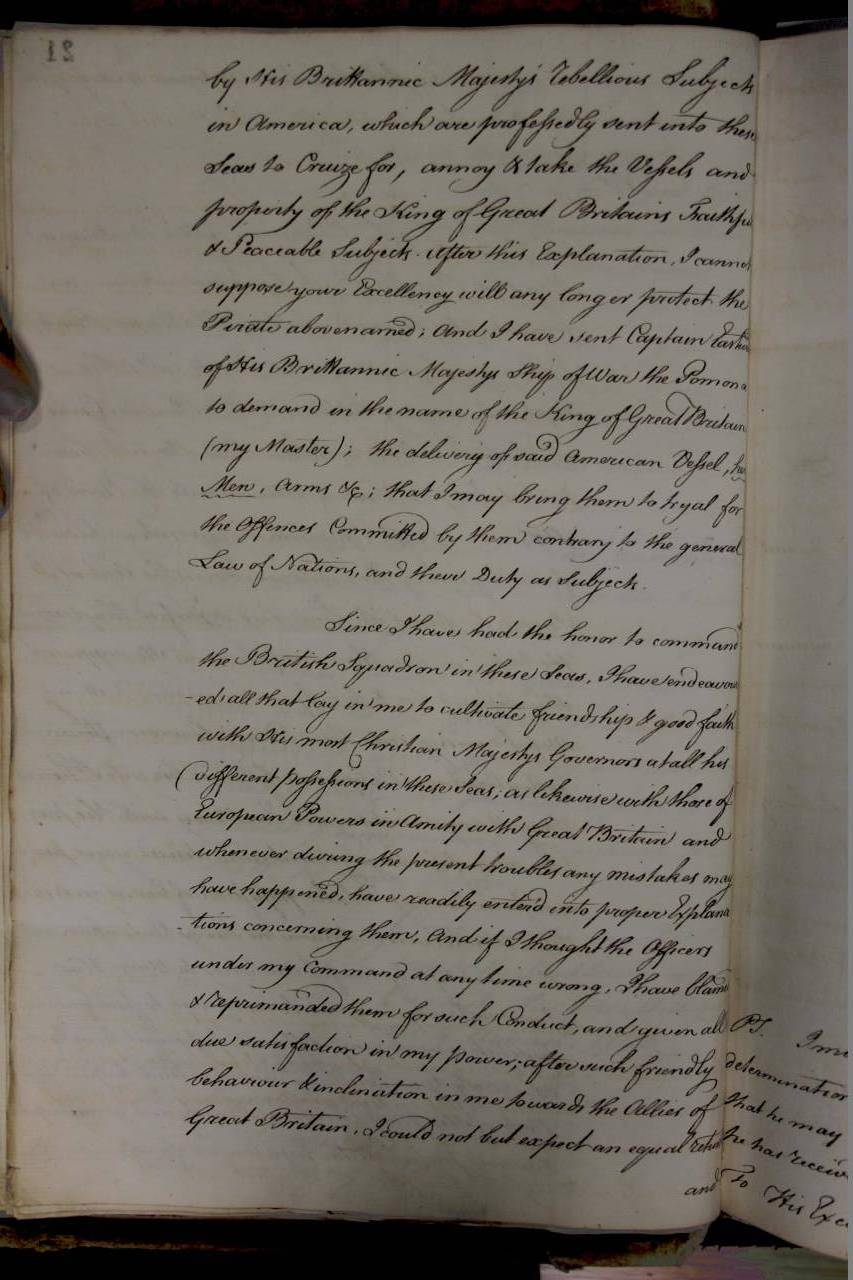 21
by His Brittannic Majesty's rebellious Subjects
in America, which are professedly sent into these
Seas to Cruize for, annoy & take the Vessels and
property of the King of Great Britains Faithfu
& Peaceable Subjects. After this Explanation, I cannot
suppose your Excellency will any longer protect the
Pirate abovenamed; And I have sent Captain
of His Brittannic Majestys Ship of War the Pomona
to demand in the name of the King of Great Britain
(my Master); the delivery of said American Vessel, her
Men, Arms &c; that I may bring them to tryal for
the Offences Committed by them contrary to the general
Law of Nations, and their Duty as Subjects.
Since I have had the honor to command
the British Squadron in these Seas, I have endeavour
-ed all that lay in me to cultivate friendship & good faith
with His most Christian Majestys Governors at all his
different possessions in these Seas; as likewise with those of
European Powers in Amity with Great Britain and
whenever during the present troubles any mistakes may
have happened, have readily enter'd into proper Explana
-tions concerning them, And if I thought the Officers
under my Command at any time wrong, I have blam'd
& reprimanded them for such Conduct, and given all
due satisfaction in my power; after such friendly
behaviour & inclination in me towards the Allies of
Great Britain, I could not but expect an equal retu
and
PS.
determination
that he may
he has receiv
To His Exce